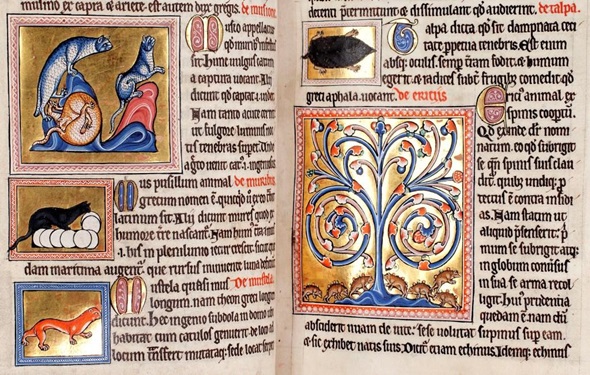 ex capra & ariete. est autem dux gregis. de musione
Musio appellat
qd murib; infestus
sit. hunc uulgus catum
a captura uocant. Alii
dicunt qd captat. i. uidet.
Nam tanto acute cernit
ut fulgore luminis noc
tis tenebras superet. Vnde
a greco uenit cat. i. ingenios
Mus pusillum animal. de muribus
grecum nomen e. quicqd u ex eo
latinum fit. Alii dicunt mures quod ex
humore terre nascant. Nam humus terra
his in plenilunio iecur crescit. sicut
dam maritima augent. que rursus minuente luna
Mustela quasi mus De mustela
longum. nam theon grece long
dicunt. hec ingenio subdola in domo ubi
habitat cum catulos genuerit de loco ad
locum transfert mutataq; sede locat. serpe
& dissimulant qd audierint. de talpa.
Talpa dicta qd sit dampnata ceci
tate ppetua tenebris. Est enim
absq; oculis. semp terram fodit. & humum
egerit & radices subt frugib; comedit. qd
greci aphala uocant. de ericiis
Ericius animal ex
spinis coopertu.
Qd exinde dr nomi
natum. eo qd subrigit
se qn spinis suis clau
dit. quib; undiq; p
tectus e contra insidi
as. Nam statim ut
aliquid psenserit. p
mum se subrigit atq;
in globum conuersus
in sua se arma recol
ligit. Hui prudentia
quedam e. nam dum
absciderit uuam de uite. sese uolutat supinus sup eam.
& sic exhibet natis suis. Dicit etiam echinus. Idemq; echinus